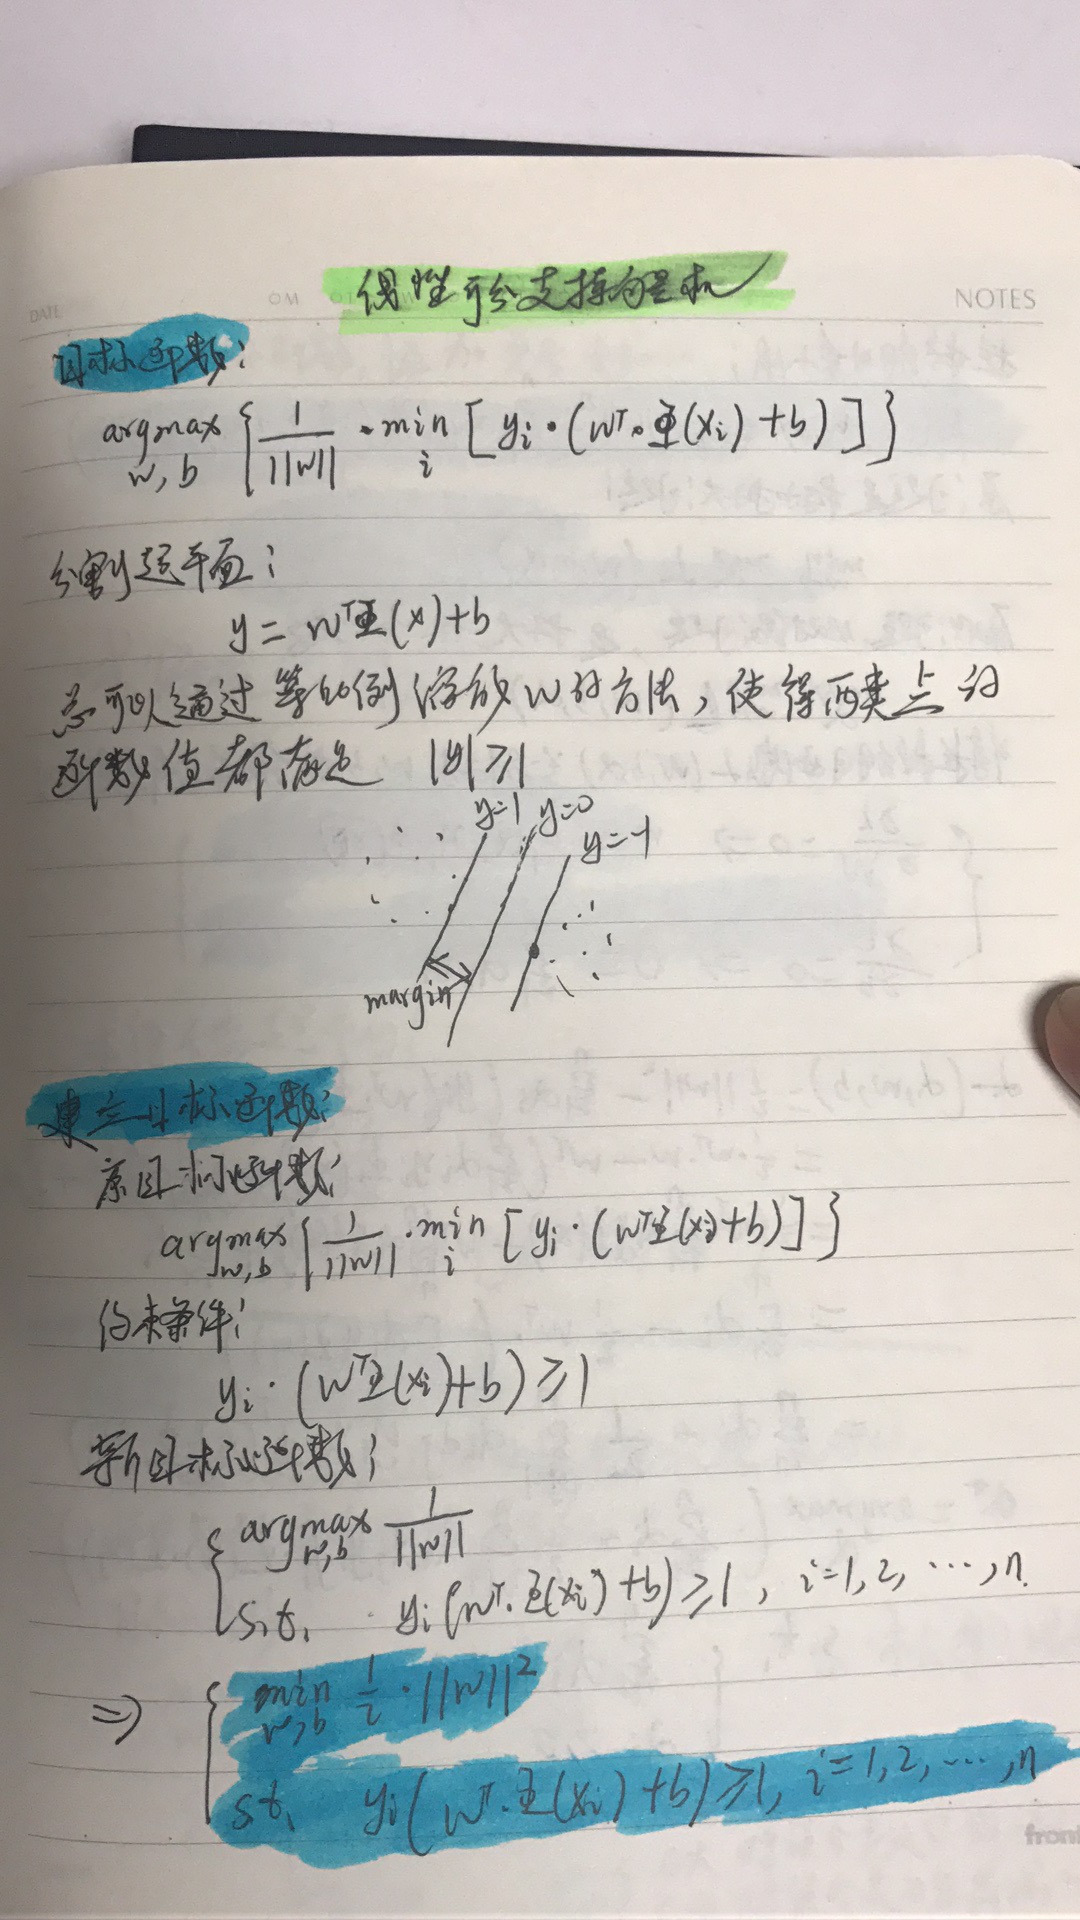 线性可分支持向量机
DATE
NOTES
目标函数:
argmax w,b { 1/||w|| · min i [ yi · (wᵀ · Φ(xi) + b) ] }
分割超平面:
y = wᵀΦ(x)+b
总可以通过等比例缩放w的方法, 使得两类点的
函数值都满足 |y|≥1
y=1 y=0
y=-1
margin
建立目标函数:
原目标函数:
argmax w,b { 1/||w|| · min i [ yi · (wᵀΦ(xi)+b) ] }
约束条件:
yi · (wᵀΦ(xi)+b) ≥ 1
新目标函数:
{ argmax w,b 1/||w||
s.t. yi(wᵀ·Φ(xi)+b) ≥ 1, i=1,2,…,n.
⇒ { min w,b 1/2 · ||w||²
s.t. yi(wᵀ·Φ(xi)+b) ≥ 1, i=1,2,…,n